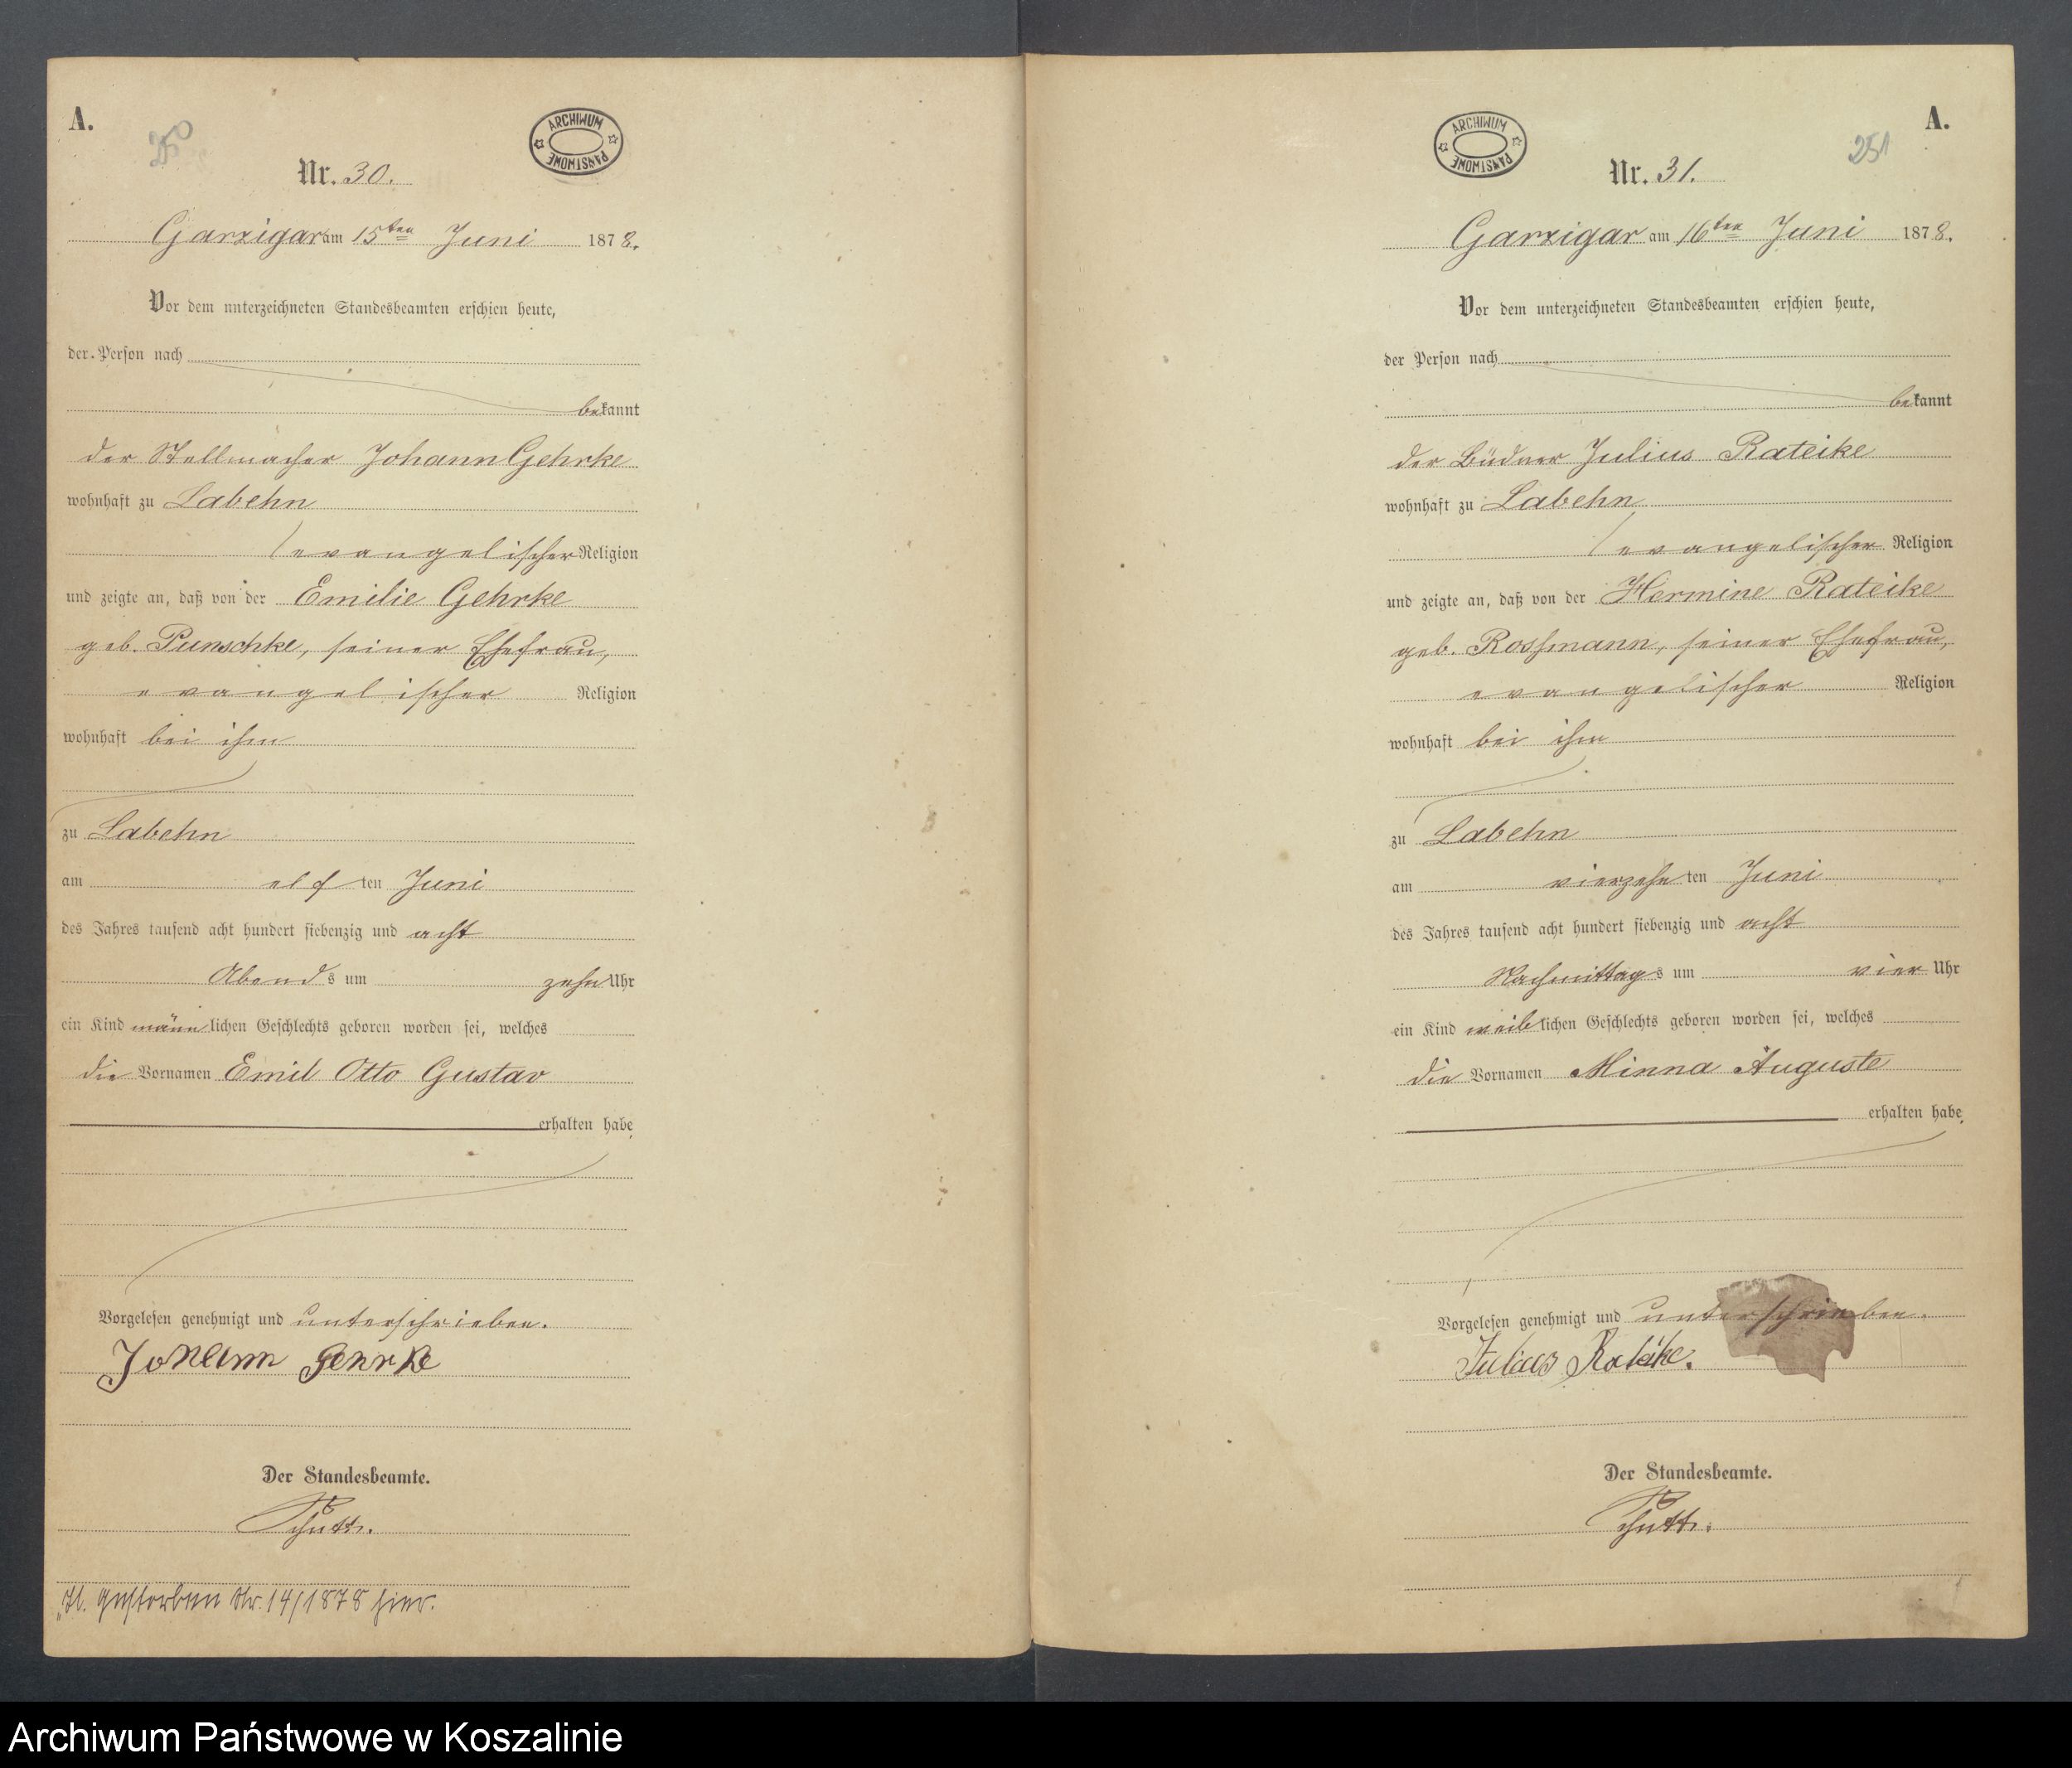 A.
250
ARCHIWUM PAŃSTWOWE
Nr. 30.
Garzigar am 15ten Juni 1878.
Vor dem unterzeichneten Standesbeamten erschien heute,
der Person nach
bekannt
der Stellmacher Johann Gehrke
wohnhaft zu Labehn
evangelischer Religion
und zeigte an, daß von der Emilie Gehrke
geb. Punschke, seiner Ehefrau,
evangelischer Religion
wohnhaft bei ihm
zu Labehn
am elften Juni
des Jahres tausend acht hundert siebenzig und acht
Abends um zehn Uhr
ein Kind männlichen Geschlechts geboren worden sei, welches
die Vornamen Emil Otto Gustav
erhalten habe
Vorgelesen genehmigt und unterschrieben.
Johann Gehrke
Der Standesbeamte.
gestorben Nr. 14/1878 hier.
A.
251
ARCHIWUM PAŃSTWOWE
Nr. 31.
Garzigar am 16ten Juni 1878.
Vor dem unterzeichneten Standesbeamten erschien heute,
der Person nach
bekannt
der Büdner Julius Rateike
wohnhaft zu Labehn
evangelischer Religion
und zeigte an, daß von der Hermine Rateike
geb. Rossmann, seiner Ehefrau,
evangelischer Religion
wohnhaft bei ihm
zu Labehn
am vierzehnten Juni
des Jahres tausend acht hundert siebenzig und acht
Nachmittags um vier Uhr
ein Kind weiblichen Geschlechts geboren worden sei, welches
die Vornamen Minna Auguste
erhalten habe
Vorgelesen genehmigt und unterschrieben.
Julius Rateike.
Der Standesbeamte.
Archiwum Państwowe w Koszalinie